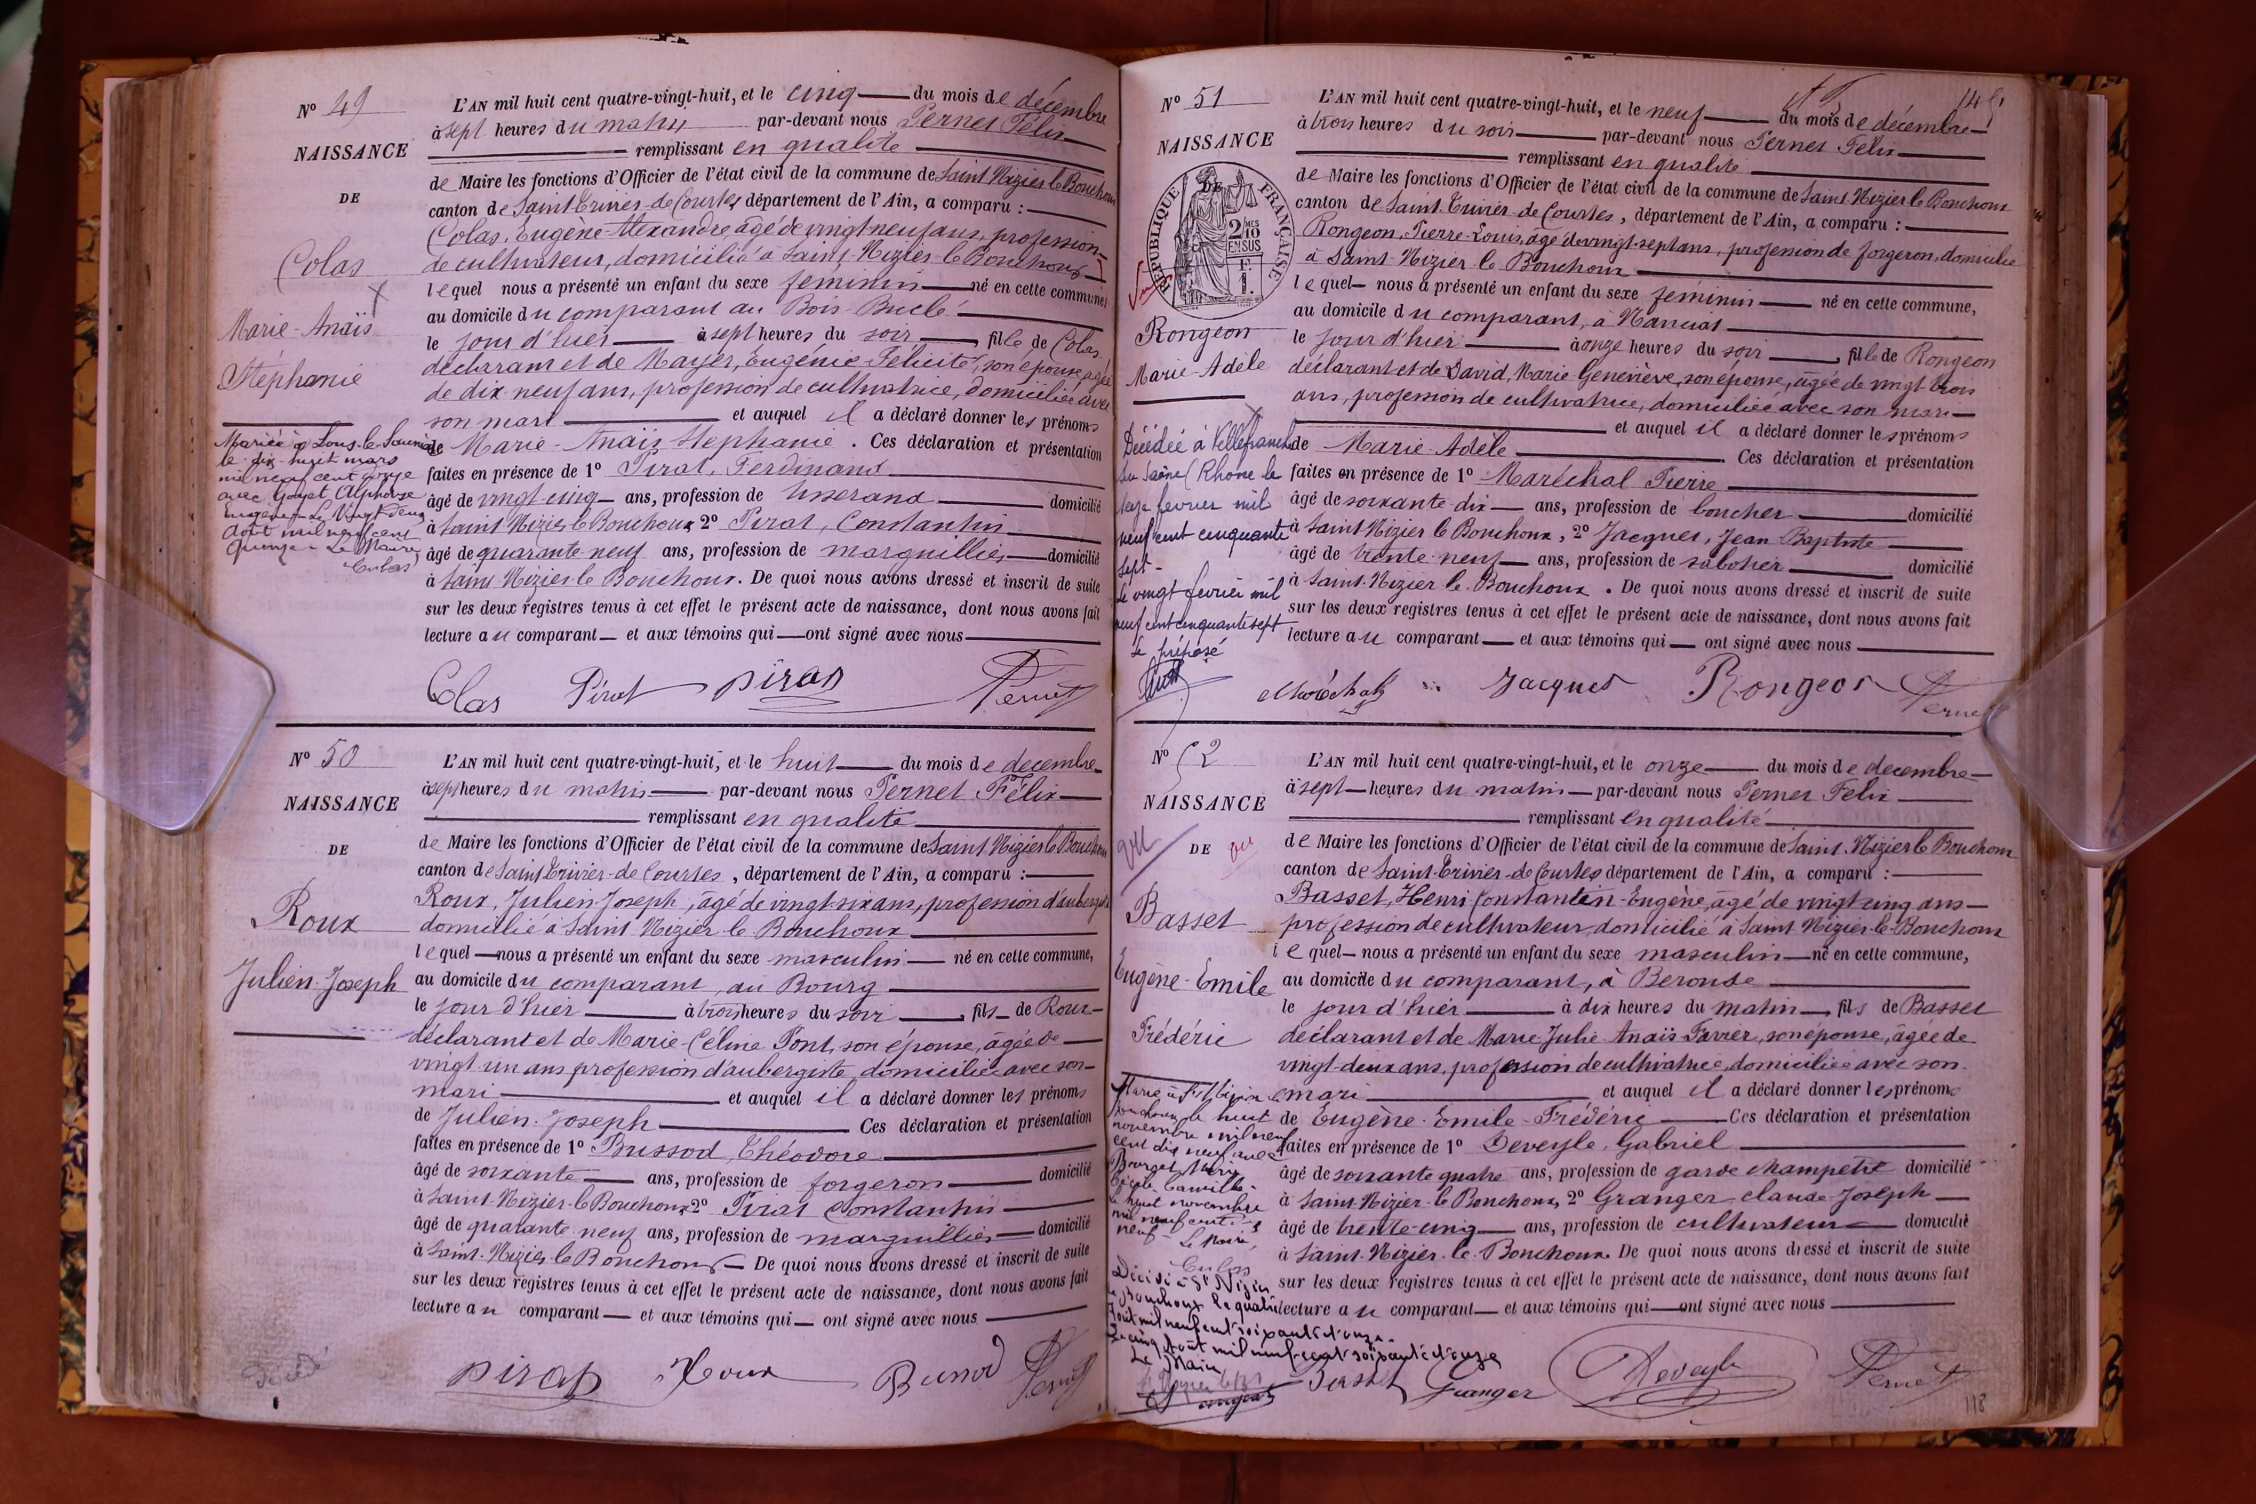 N° 49
NAISSANCE
DE
Colas
Marie-Anaïs
Stéphanie
Mariée à Lons-le-Saunier
le dix-huit mars
mil neuf cent
avec Goyet Alphonse
Eugène - Le Vingt deux
Août mil neuf cent
quinze - Le Maire
Colas
L'AN mil huit cent quatre-vingt-huit, et le cinq du mois de décembre
à sept heures du matin par-devant nous Pernet Félix
remplissant en qualité
de Maire les fonctions d'Officier de l'état civil de la commune de Saint Nizier le Bouchoux
canton de Saint-Trivier-de-Courtes, département de l'Ain, a comparu :
Colas, Eugène-Alexandre, âgé de vingt-neuf ans, profession
de cultivateur, domicilié à Saint-Nizier-le-Bouchoux
lequel nous a présenté un enfant du sexe féminin né en cette commune,
au domicile du comparant au Bois-Buclé
le jour d'hier à sept heures du soir, fille de Colas
déclarant et de Mayer, Eugénie-Félicité, son épouse, âgée
de dix neuf ans, profession de cultivatrice, domiciliée avec
son mari et auquel il a déclaré donner les prénoms
de Marie-Anaïs Stéphanie. Ces déclaration et présentation
faites en présence de 1° Pirat, Ferdinand
âgé de vingt cinq ans, profession de tisserand domicilié
à Saint Nizier le Bouchoux 2° Pirat, Constantin
âgé de quarante neuf ans, profession de marguillier domicilié
à Saint Nizier le Bouchoux. De quoi nous avons dressé et inscrit de suite
sur les deux registres tenus à cet effet le présent acte de naissance, dont nous avons fait
lecture au comparant et aux témoins qui ont signé avec nous
Colas Pirat Pirat Pernet
N° 50
NAISSANCE
DE
Roux
Julien-Joseph
Décédé
L'AN mil huit cent quatre-vingt-huit, et le huit du mois de décembre
à sept heures du matin par-devant nous Pernet Félix
remplissant en qualité
de Maire les fonctions d'Officier de l'état civil de la commune de Saint Nizier le Bouchoux
canton de Saint Trivier-de-Courtes, département de l'Ain, a comparu :
Roux, Julien-Joseph, âgé de vingt-six ans, profession d'aubergiste
domicilié à Saint Nizier le Bouchoux
lequel nous a présenté un enfant du sexe masculin né en cette commune,
au domicile du comparant, au Bourg
le jour d'hier à trois heures du soir, fils de Roux
déclarant et de Marie-Céline Pont, son épouse, âgée de
vingt-un ans profession d'aubergiste, domiciliée avec son
mari et auquel il a déclaré donner les prénoms
de Julien-Joseph Ces déclaration et présentation
faites en présence de 1° Bussod, Théodore
âgé de soixante ans, profession de forgeron domicilié
à Saint-Nizier-le-Bouchoux 2° Pirat Constantin
âgé de quarante neuf ans, profession de marguillier domicilié
à Saint-Nizier le Bouchoux De quoi nous avons dressé et inscrit de suite
sur les deux registres tenus à cet effet le présent acte de naissance, dont nous avons fait
lecture au comparant et aux témoins qui ont signé avec nous
Pirat Roux Bussod Pernet
N° 51
NAISSANCE
DE
RÉPUBLIQUE FRANÇAISE
2/10 EN SUS
1F.
Rongeon
Marie-Adèle
Décédée à Villefranche
sur Saône (Rhône) le
seize février mil
neuf cent cinquante
sept -
Le vingt février mil
neuf cent cinquante sept
Le préposé
L'AN mil huit cent quatre-vingt-huit, et le neuf du mois de décembre
à trois heures du soir par-devant nous Pernet Félix
remplissant en qualité
de Maire les fonctions d'Officier de l'état civil de la commune de Saint Nizier le Bouchoux
canton de Saint-Trivier-de-Courtes, département de l'Ain, a comparu :
Rongeon, Pierre-Louis, âgé de vingt-sept ans, profession de forgeron, domicilié
à Saint-Nizier le Bouchoux
lequel nous a présenté un enfant du sexe féminin né en cette commune,
au domicile du comparant, à Nanciat
le jour d'hier à onze heures du soir, fille de Rongeon
déclarant et de David, Marie-Geneviève, son épouse, âgée de vingt-trois
ans, profession de cultivatrice, domiciliée avec son mari
et auquel il a déclaré donner les prénoms
de Marie-Adèle Ces déclaration et présentation
faites en présence de 1° Maréchal Pierre
âgé de soixante dix ans, profession de boucher domicilié
à Saint Nizier le Bouchoux, 2° Jacques, Jean Baptiste
âgé de trente-neuf ans, profession de sabotier domicilié
à Saint-Nizier-le-Bouchoux. De quoi nous avons dressé et inscrit de suite
sur les deux registres tenus à cet effet le présent acte de naissance, dont nous avons fait
lecture au comparant et aux témoins qui ont signé avec nous
Maréchal Jacques Rongeon Pernet
N° 52
NAISSANCE
vu DE vu
Basset
Eugène-Emile
Frédéric
Marié à St Nizier le
Bouchoux le huit
novembre mil neuf
cent dix neuf avec
Bourget Mary
Cécile Camille -
Le huit novembre
mil neuf cent dix
neuf - Le Maire,
Colas
Décédé à St Nizier
le Bouchoux le quatre
Août mil neuf cent soixante et onze.
Le cinq Août mil neuf cent soixante et onze
Le Maire
L'AN mil huit cent quatre-vingt-huit, et le onze du mois de décembre
à sept heures du matin par-devant nous Pernet Félix
remplissant en qualité
de Maire les fonctions d'Officier de l'état civil de la commune de Saint-Nizier le Bouchoux
canton de Saint-Trivier-de-Courtes département de l'Ain, a comparu :
Basset, Henri Constantin-Eugène, âgé de vingt-cinq ans
profession de cultivateur, domicilié à Saint Nizier-le-Bouchoux
lequel nous a présenté un enfant du sexe masculin né en cette commune,
au domicile du comparant, à Beronde
le jour d'hier à dix heures du matin, fils de Basset
déclarant et de Marie Julie Anaïs Favier, son épouse, âgée de
vingt-deux ans, profession de cultivatrice, domiciliée avec son
mari et auquel il a déclaré donner les prénoms
de Eugène-Emile-Frédéric Ces déclaration et présentation
faites en présence de 1° Deveyle, Gabriel
âgé de soixante quatre ans, profession de garde champêtre domicilié
à Saint-Nizier-le Bouchoux, 2° Granger Claude-Joseph
âgé de trente-cinq ans, profession de cultivateur domicilié
à Saint-Nizier-le-Bouchoux. De quoi nous avons dressé et inscrit de suite
sur les deux registres tenus à cet effet le présent acte de naissance, dont nous avons fait
lecture au comparant et aux témoins qui ont signé avec nous
Basset Granger Deveyle Pernet
118